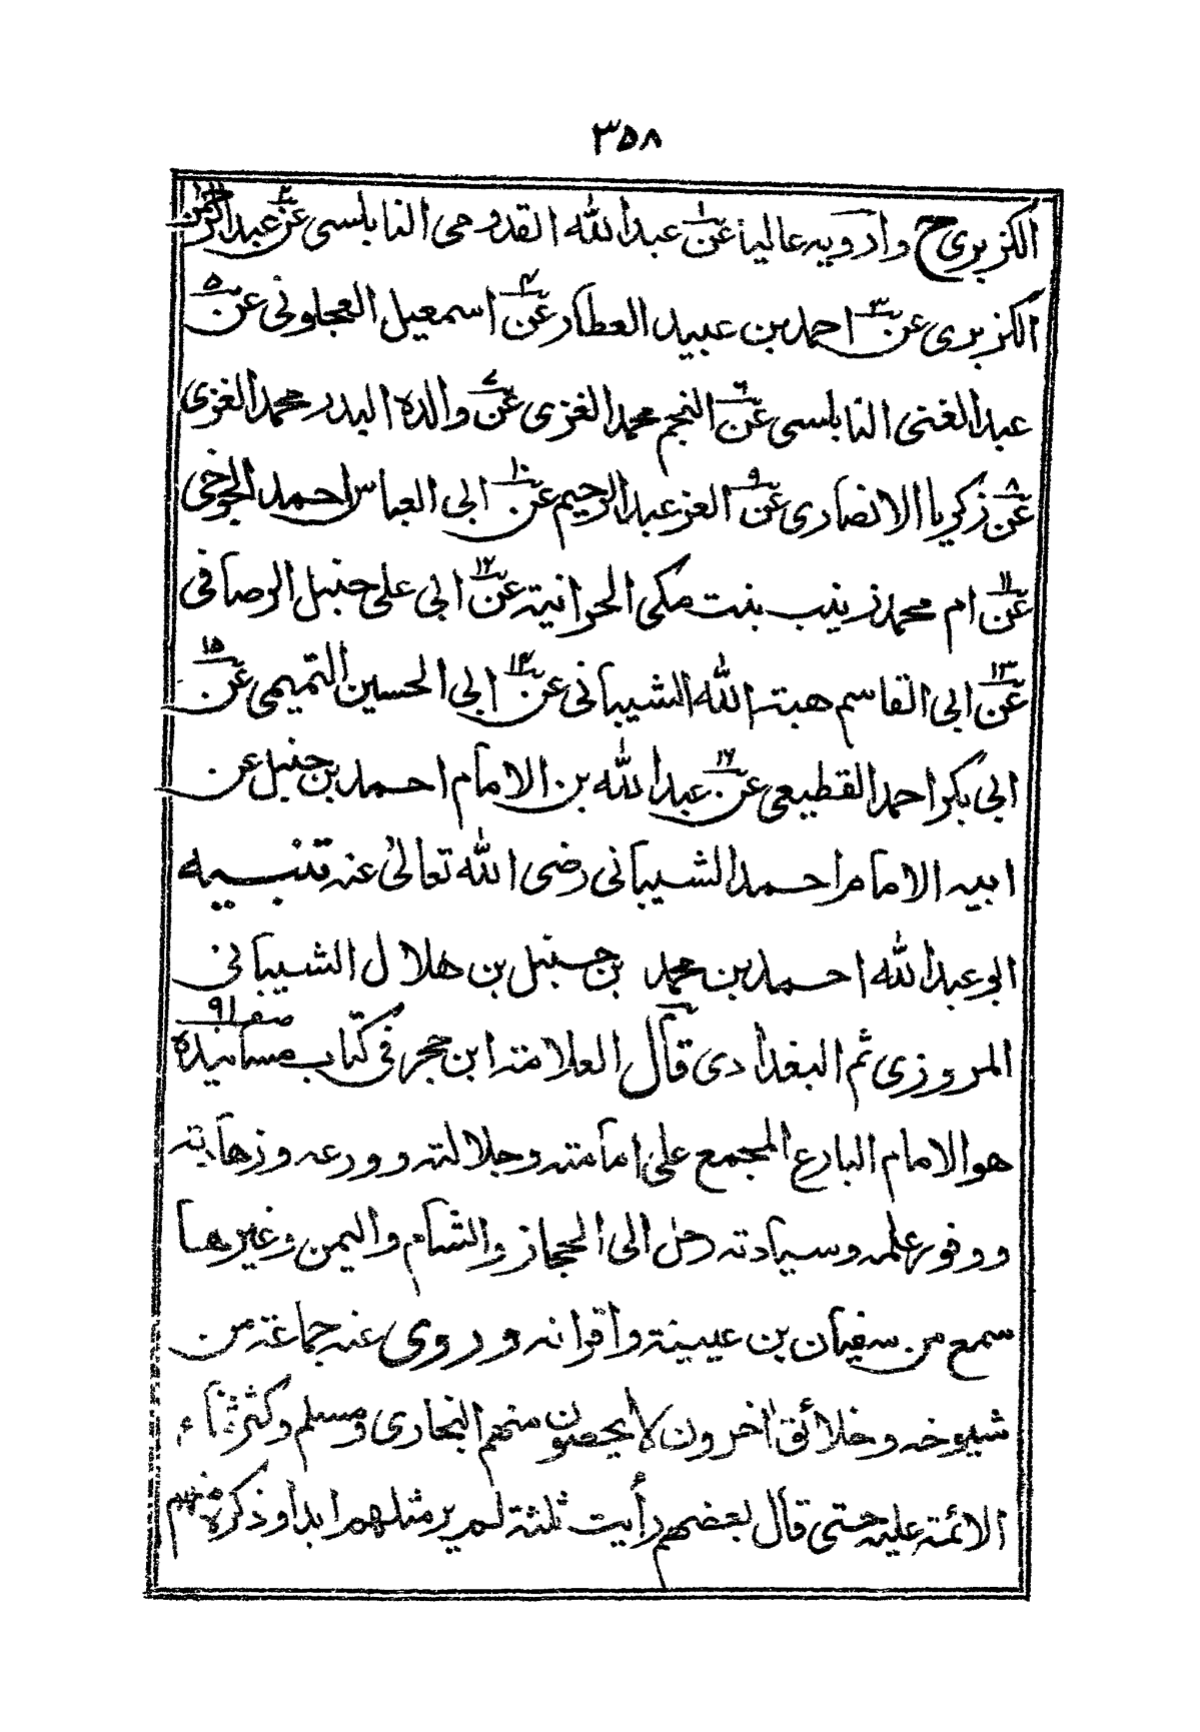 ۳۵۸
الكزبرى ح وارويه عاليا عن۱ عبد الله القدومى النابلسى عن۲ عبد الرحمن
الكزبرى عن۳ احمد بن عبيد العطار عن۴ اسمعيل العجلونى عن۵
عبد الغنى النابلسى عن۶ النجم محمد الغزى عن۷ والده البدر محمد الغزى
عن۸ زكريا الانصارى عن۹ العز عبد الرحيم عن۱۰ ابى العباس احمد الجوخى
عن۱۱ ام محمد زينب بنت مكى الحرانية عن۱۲ ابى على حنبل الرصافى
عن۱۳ ابى القاسم هبته الله الشيبانى عن۱۴ ابى الحسين التميمى عن۱۵
ابى بكر احمد القطيعى عن۱۶ عبد الله بن الامام احمد بن حنبل عن
ابيه الامام احمد الشيبانى رضى الله تعالىٰ عنه تنبيه
ابو عبد الله احمد بن محمد بن حنبل بن هلال الشيبانى
المروزى ثم البغدادى قال العلامته ابن حجر فى كتاب مسانيده صفـ ۹۱
هو الامام البارع المجمع على امامته وجلالته وورعه وزهادته
ووفور علمه وسيادته رحل الى الحجاز والشام واليمن وغيرها
سمع من سفيان بن عيينة واقرانه وروى عنه جماعة من
شيوخه وخلائق اٰخرون لا يحصون منهم البخارى ومسلم وكثر ثناء
الائمة عليه حتى قال بعضهم رأيت ثلثة لم ير مثلهم ابدا وذكره منهم